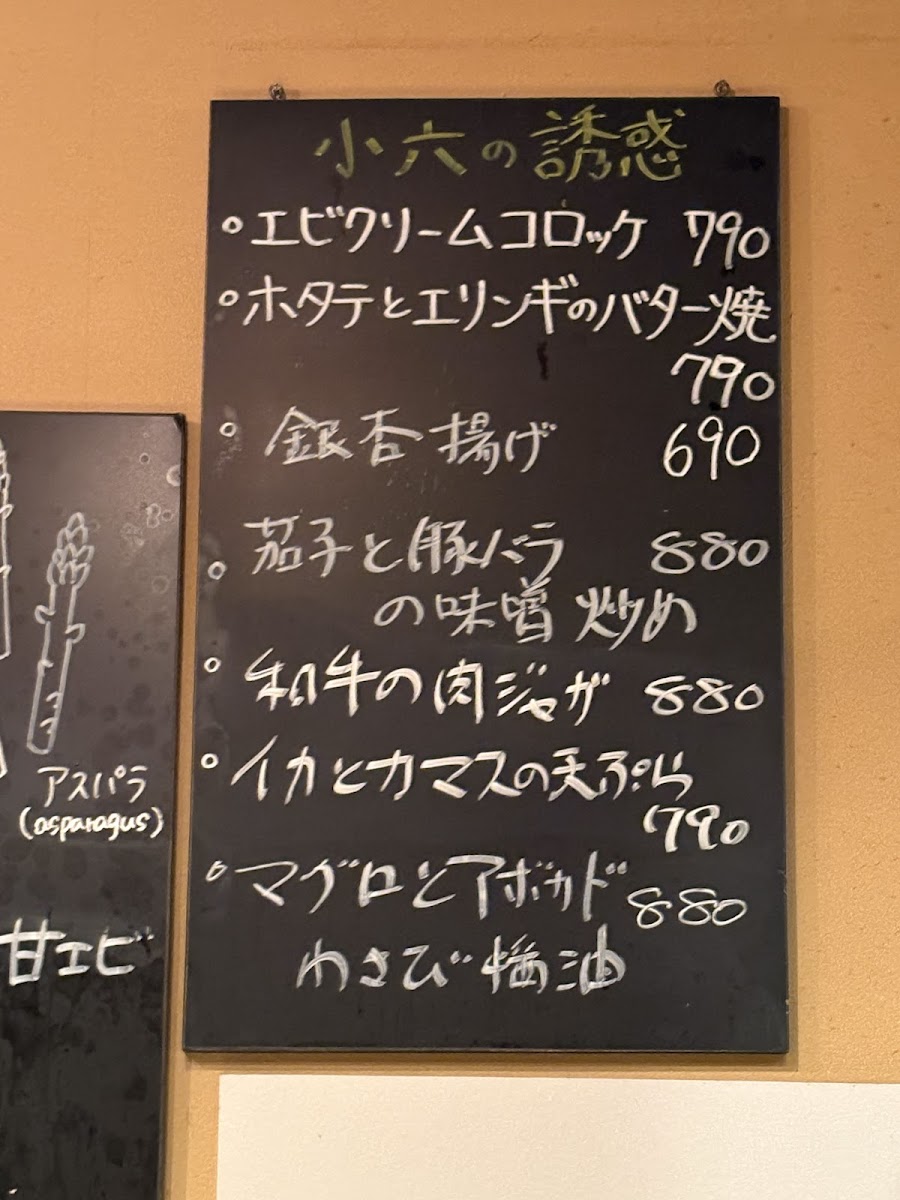 小六の誘惑
エビクリームコロッケ 790
ホタテとエリンギのバター焼
790
銀杏揚げ 690
茄子と豚バラ 880
の味噌炒め
和牛の肉ジャガ 880
イカとカマスの天ぷら
790
マグロとアボカド 880
わさび醤油
アスパラ
(asparagus)
甘エビ